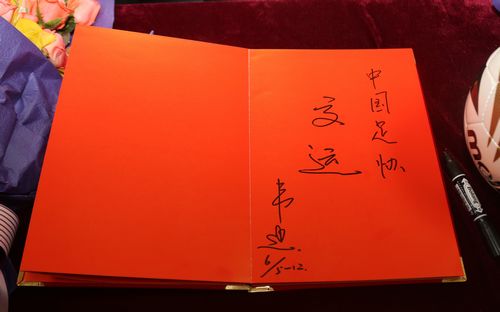 中国足协
交运
韦迪
6/5-12.